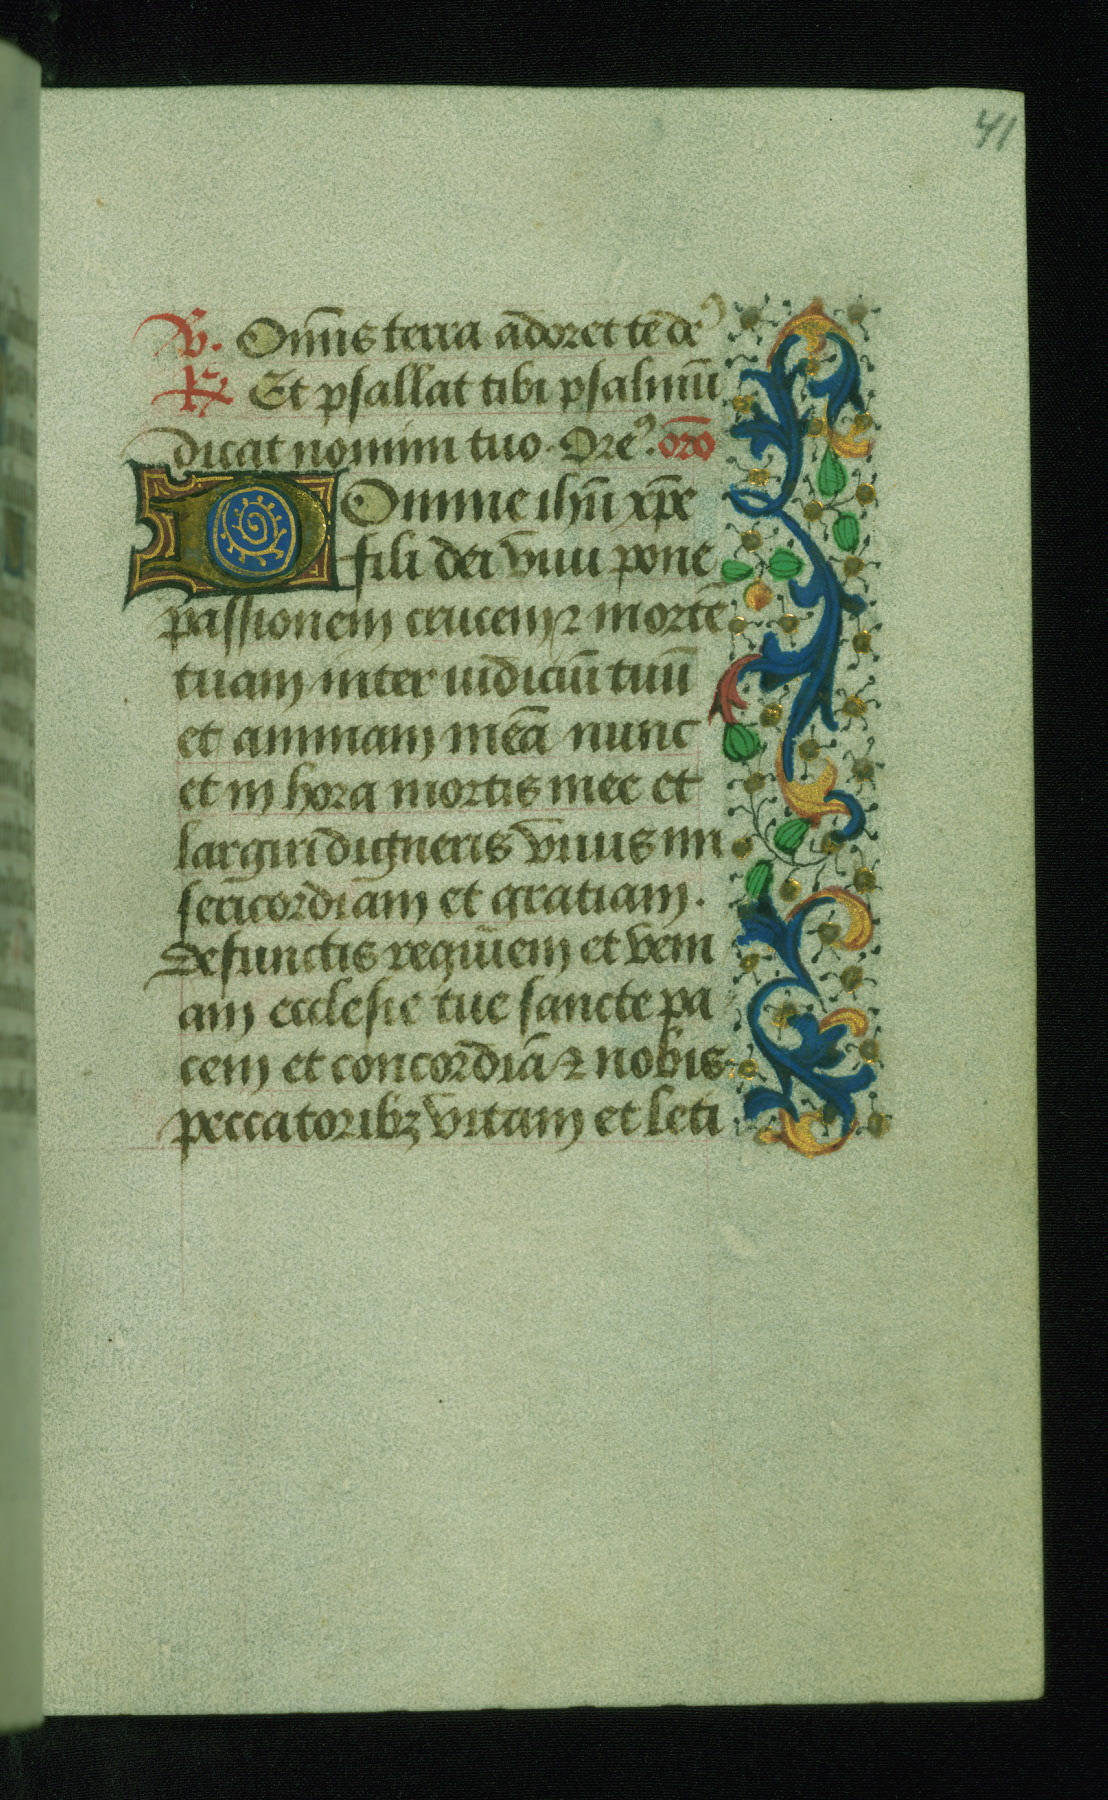 41
V. Om̄is terra adoret te deꝰ
R Et psallat tibi psalmū
dicat nomini tuo. Oreꝰ. oro̅
Domine ih̄u xp̄e
fili dei viui pone
passionem crucem ⁊ mortē
tuam inter iudiciū tuū
et animam meā nunc
et in hora mortis mee et
largiri digneris viuis mi
sericordiam et gratiam.
Defunctis requiem et veni
am ecclesie tue sancte pa
cem et concordiā ⁊ nobis
peccatoribꝫ vitam et leti